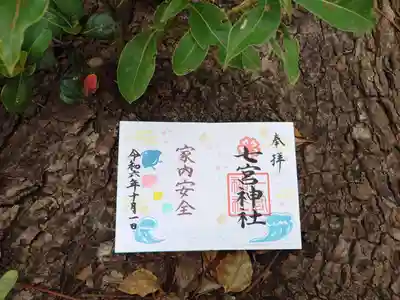 奉拝
七宮神社
家内安全
令和六年十月一日